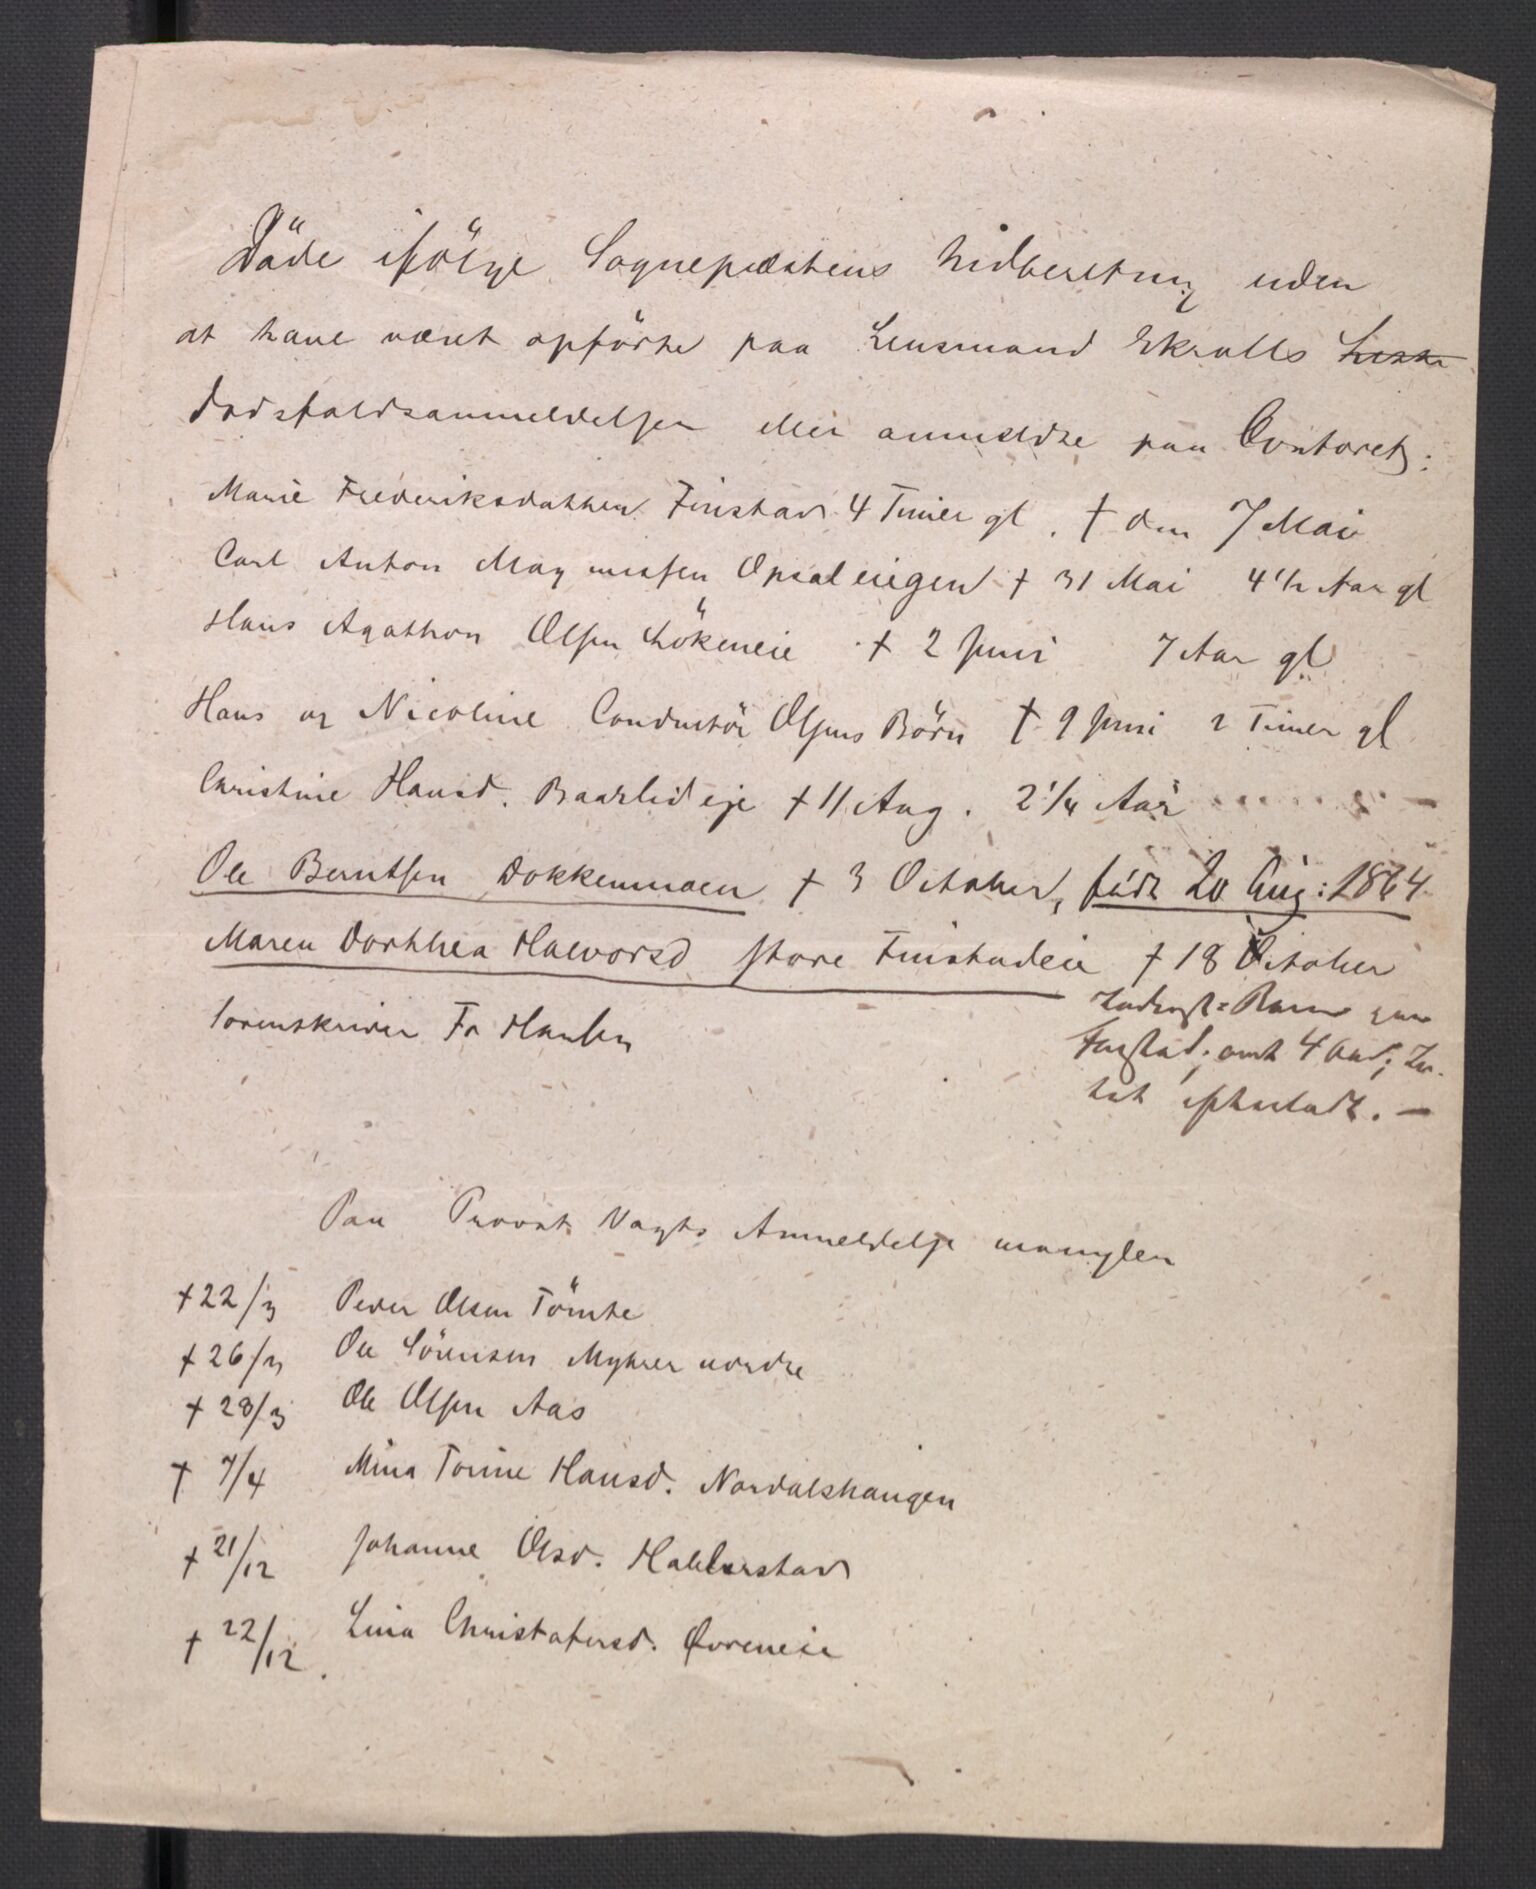 Döde ifölge Sognepræstens Indberetning uden
at have været opförte paa Lensmand Skralls Liste
dødsfaldsanmeldelser eller anmeldte paa Contoret:
Marie Frederiksdatter Finstad 4 Timer gl. † den 7 Mai
Carl Anton Magnussen Opsaleiegen † 31 Mai 4 1/2 Aar gl
Hans Agathon Olsen Lökeneie † 2 Juni 7 Aar gl
Hans og Nicoline Conductör Olsens Börn † 9 Juni 2 Timer gl
Christine Hansd. Baarlideje † 11 Aug. 2 1/4 Aar
Ole Berntsen Dokkenmoen † 3 October, född 20 Aug: 1864
Maren Dorthea Halvorsd store Finstadeie † 18 October
Sorenskriver Fr Hansen
Finstad, omt 4 Aar;
efterladt. —
Paa Provst Vogts Anmeldelse mangler
† 22/3 Peder Olsen Tömte
† 26/3 Ole Sörensen Myhrer nordre
† 28/3 Ole Olsen Aas
† 7/4 Mina Torine Hansd. Nordalshaugen
† 21/12 Johanne Olsd. Hallerstad
† 22/12. Lina Christofersd. Øvreneie